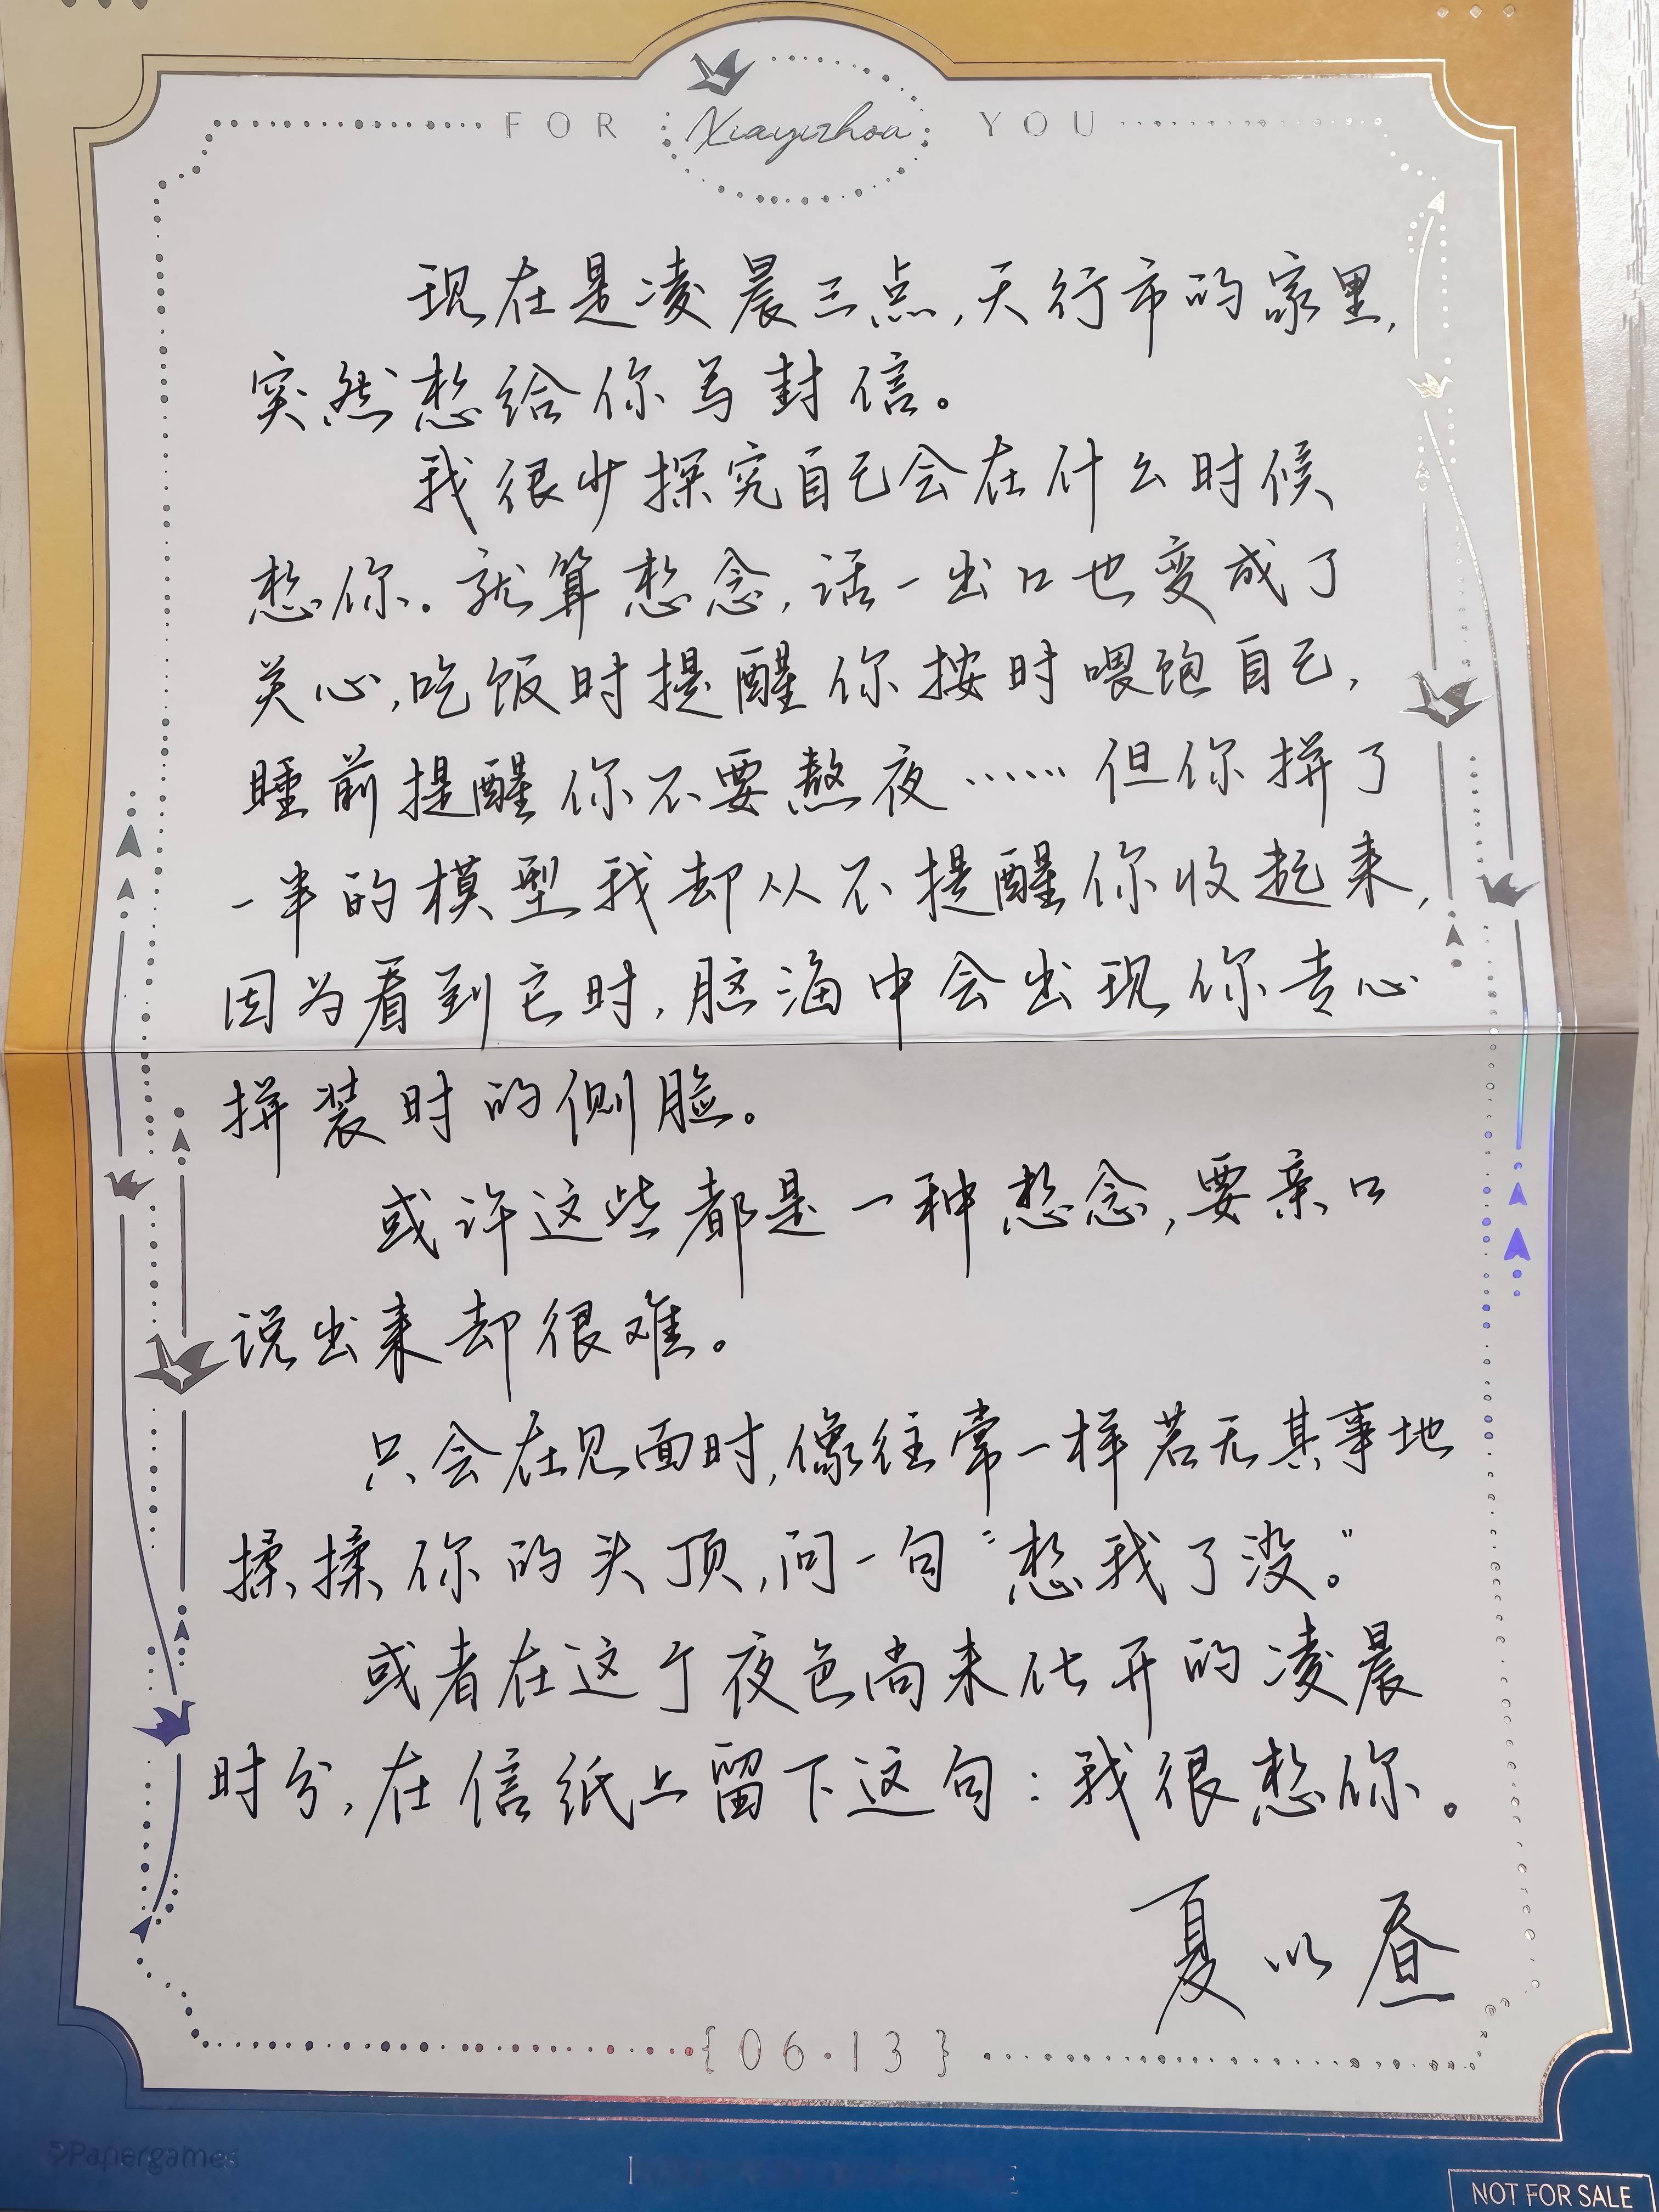 FOR Xiayizhou YOU
现在是凌晨三点,天行市的家里,
突然想给你写封信。
我很少探究自己会在什么时候
想你。就算想念,话一出口也变成了
关心,吃饭时提醒你按时喂饱自己,
睡前提醒你不要熬夜……但你拼了
一半的模型我却从不提醒你收起来,
因为看到它时,脑海中会出现你专心
拼装时的侧脸。
或许这些都是一种想念,要亲口
说出来却很难。
只会在见面时,像往常一样若无其事地
揉揉你的头顶,问一句“想我了没。”
或者在这个夜色尚未化开的凌晨
时分,在信纸上留下这句:我很想你。
夏以昼
{06.13}
Papergames
NOT FOR SALE